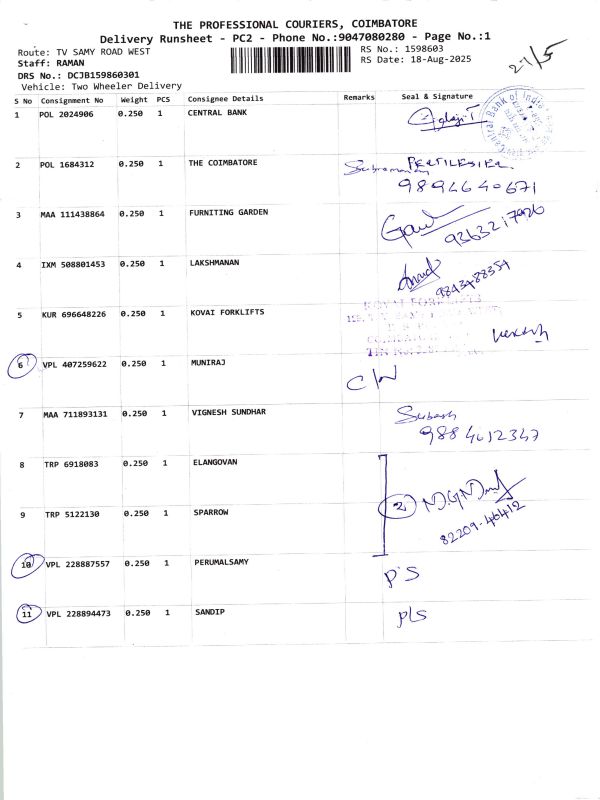 THE PROFESSIONAL COURIERS, COIMBATORE
Delivery Runsheet - PC2 - Phone No.:9047080280 - Page No.:1
Route: TV SAMY ROAD WEST
RS No.: 1598603
Staff: RAMAN
RS Date: 18-Aug-2025
DRS No.: DCJB159860301
Vehicle: Two Wheeler Delivery
S No Consignment No Weight PCS Consignee Details Remarks Seal & Signature
1 POL 2024906 0.250 1 CENTRAL BANK
2 POL 1684312 0.250 1 THE COIMBATORE
3 MAA 111438864 0.250 1 FURNITING GARDEN
4 IXM 508801453 0.250 1 LAKSHMANAN
9843488359
5 KUR 696648226 0.250 1 KOVAI FORKLIFTS
KOVAI FORKLIFTS
6 VPL 407259622 0.250 1 MUNIRAJ
7 MAA 711893131 0.250 1 VIGNESH SUNDHAR Subash
9884612347
8 TRP 6918083 0.250 1 ELANGOVAN
2
9 TRP 5122130 0.250 1 SPARROW
82209-46412
10 VPL 228887557 0.250 1 PERUMALSAMY
P S
11 VPL 228894473 0.250 1 SANDIP
P/S